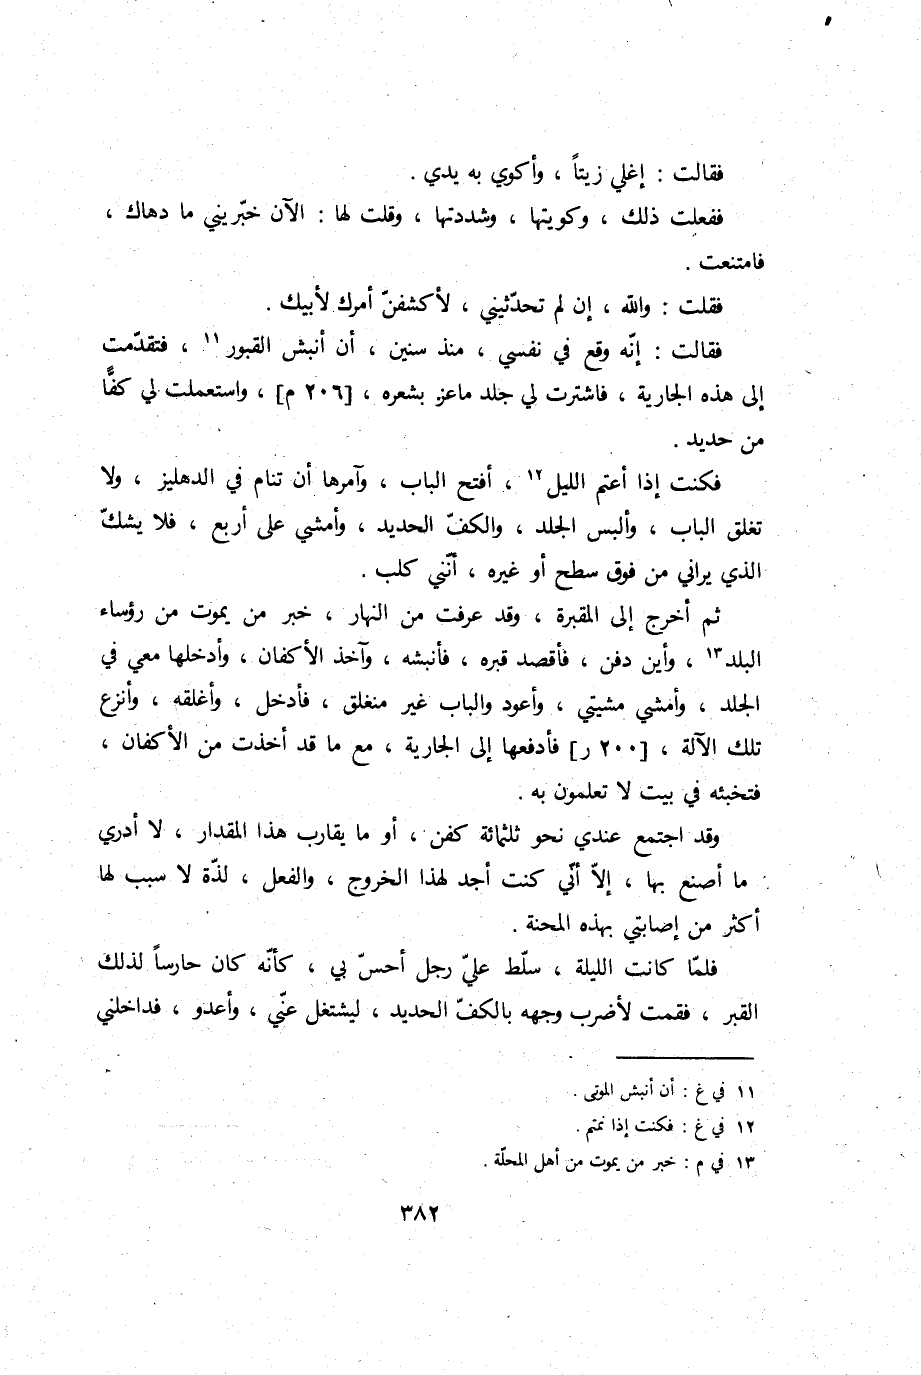 فقالت : إغلي زيتاً ، وأكوي به يدي .
ففعلت ذلك ، وكويتها ، وشددتها ، وقلت لها : الآن خبّريني ما دهاك ،
فامتنعت .
فقلت : والله ، إن لم تحدّثيني ، لأكشفنّ أمرك لأبيك .
فقالت : إنّه وقع في نفسي ، منذ سنين ، أن أنبش القبور ١١ ، فتقدّمت
إلى هذه الجارية ، فاشترت لي جلد ماعز بشعره ، [٢٠٦ م] ، واستعملت لي كفًّا
من حديد .
فكنت إذا أعتم الليل ١٢ ، أفتح الباب ، وآمرها أن تنام في الدهليز ، ولا
تغلق الباب ، وألبس الجلد ، والكفّ الحديد ، وأمشي على أربع ، فلا يشكّ
الذي يراني من فوق سطح أو غيره ، أنّني كلب .
ثم أخرج إلى المقبرة ، وقد عرفت من النهار ، خبر من يموت من رؤساء
البلد ١٣ ، وأين دفن ، فأقصد قبره ، فأنبشه ، وآخذ الأكفان ، وأدخلها معي في
الجلد ، وأمشي مشيتي ، وأعود والباب غير منغلق ، فأدخل ، وأغلقه ، وأنزع
تلك الآلة ، [٢٠٠ ر] فأدفعها إلى الجارية ، مع ما قد أخذت من الأكفان ،
فتخبئه في بيت لا تعلمون به .
وقد اجتمع عندي نحو ثلثمائة كفن ، أو ما يقارب هذا المقدار ، لا أدري
ما أصنع بها ، إلاّ أنّي كنت أجد لهذا الخروج ، والفعل ، لذّة لا سبب لها
أكثر من إصابتي بهذه المحنة .
فلمّا كانت الليلة ، سلّط عليّ رجل أحسّ بي ، كأنّه كان حارساً لذلك
القبر ، فقمت لأضرب وجهه بالكفّ الحديد ، ليشتغل عنّي ، وأعدو ، فداخلني
١١ في غ : أن أنبش الموتى .
١٢ في غ : فكنت إذا نمتم .
١٣ في م : خبر من يموت من أهل المحلّة .
٣٨٢